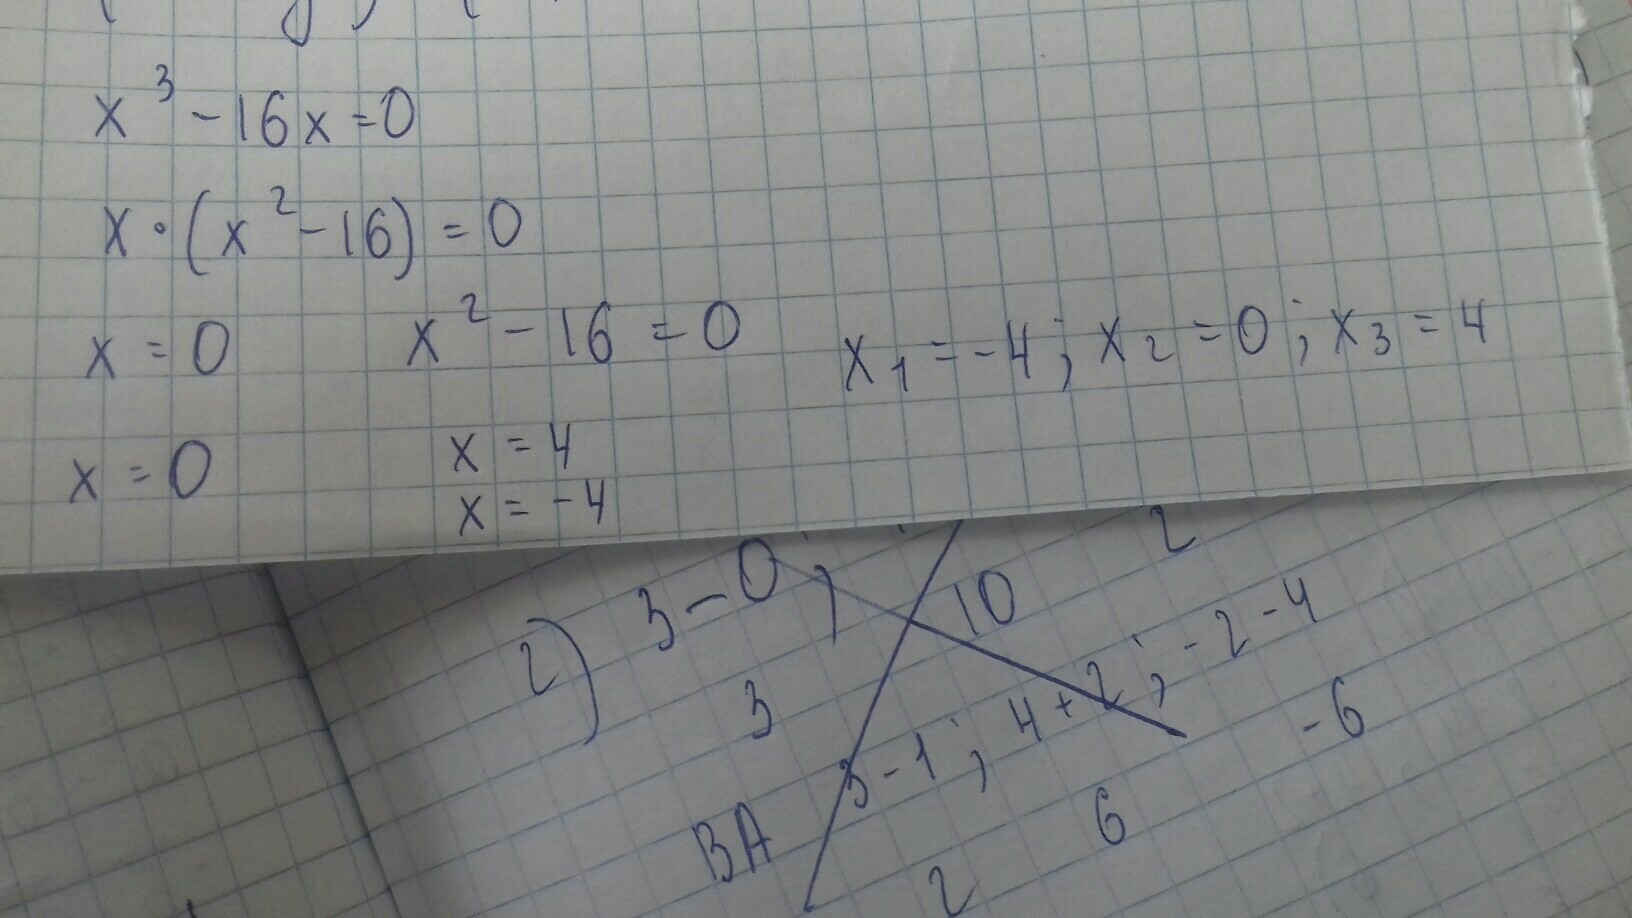 x³ - 16x = 0
x · (x² - 16) = 0
x = 0 x² - 16 = 0 x₁ = -4; x₂ = 0; x₃ = 4
x = 0 x = 4
x = -4
2) 3 - 0; 10 2
3
BA 3 - 1; 4 + 2; -2 - 4
2 6 -6